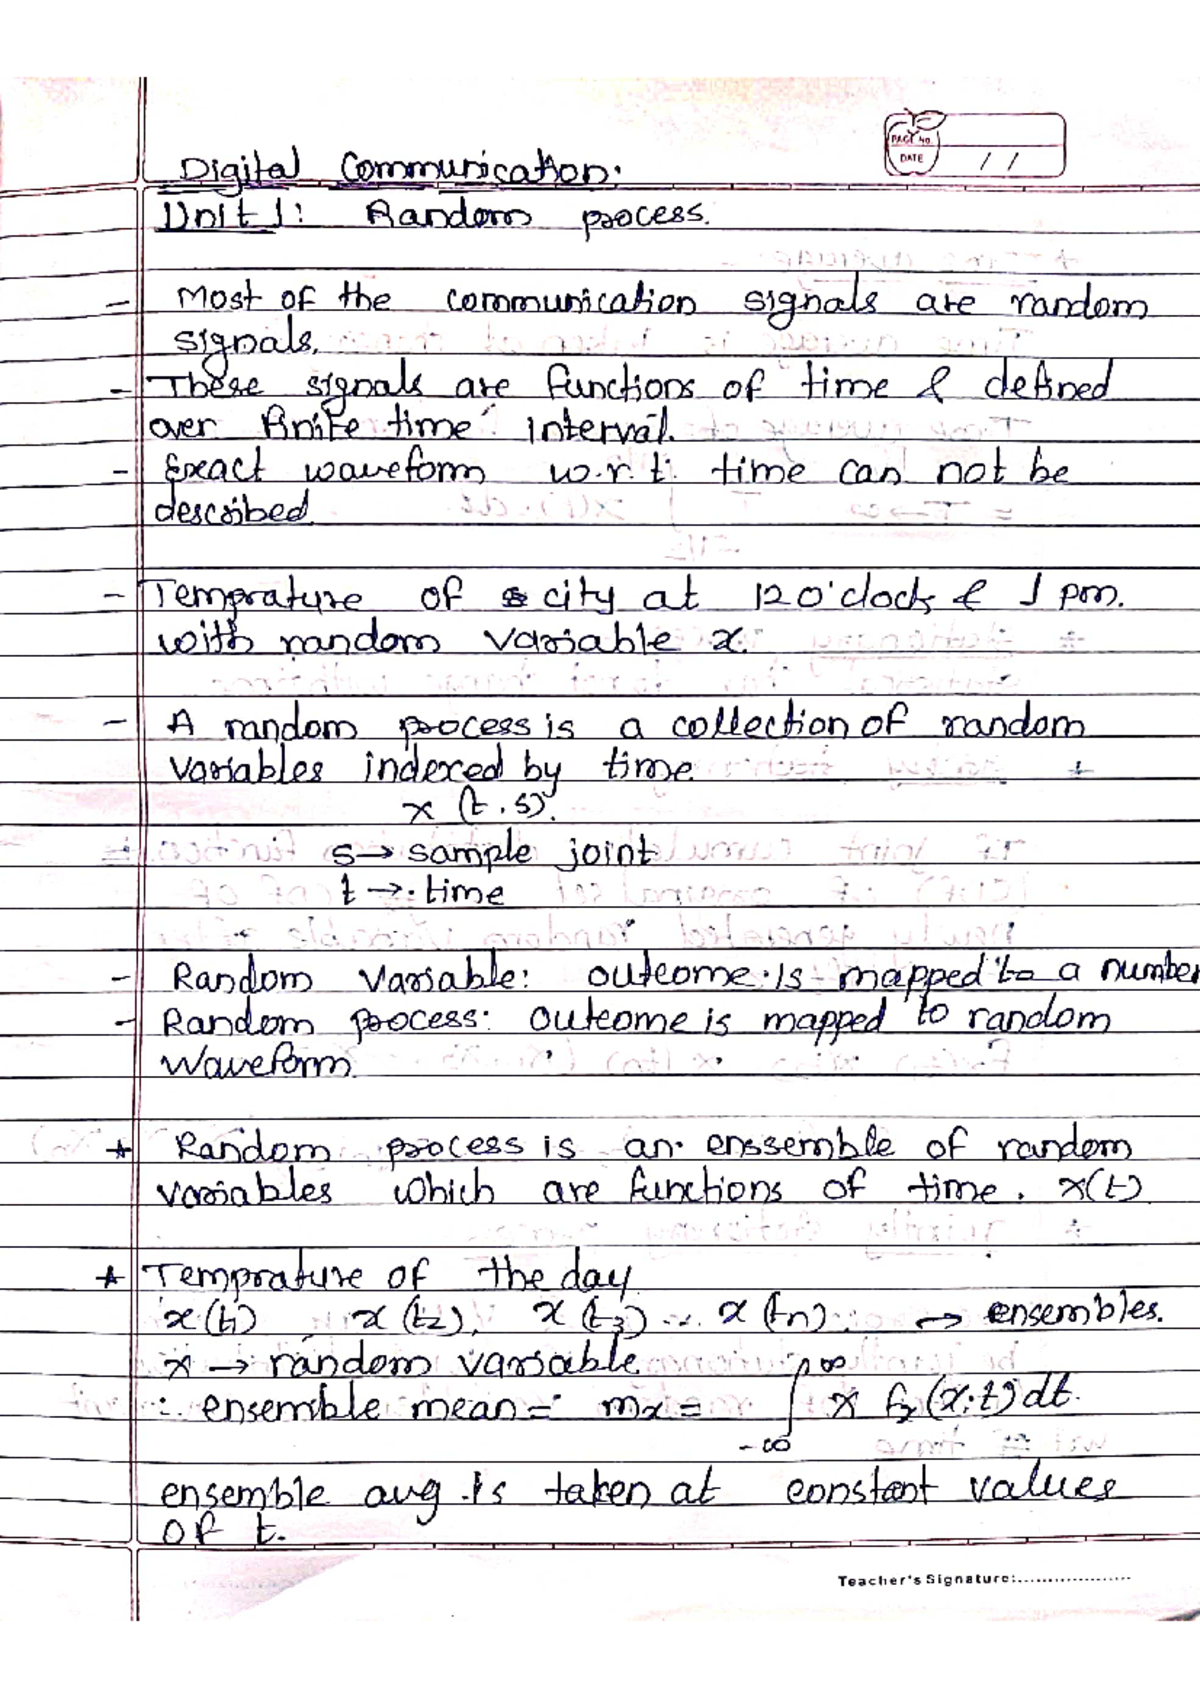 PAGE No.
DATE / /
Digital Communication.
Unit 1: Random process.
- Most of the communication signals are random
signals.
- These signals are functions of time & defined
over finite time interval.
- Exact waveform w.r.t. time can not be
described
- Temprature of city at 12 O'clock & 1 pm.
with random variable x.
- A random process is a collection of random
variables indexed by time
x (t, s).
s → sample joint
t → time
- Random Variable: outcome is mapped to a number
- Random process: outcome is mapped to random
waveform.
* Random process is an enssemble of random
variables which are functions of time. x(t)
* Temprature of the day
x(t1) x(t2), x(t3) ... x(tn). → ensembles.
x → random variable
∴ ensemble mean = mx = ∫ -∞ ∞ x fx(x;t) dt.
ensemble avg is taken at constant values
of t.
Teacher's Signature:...................